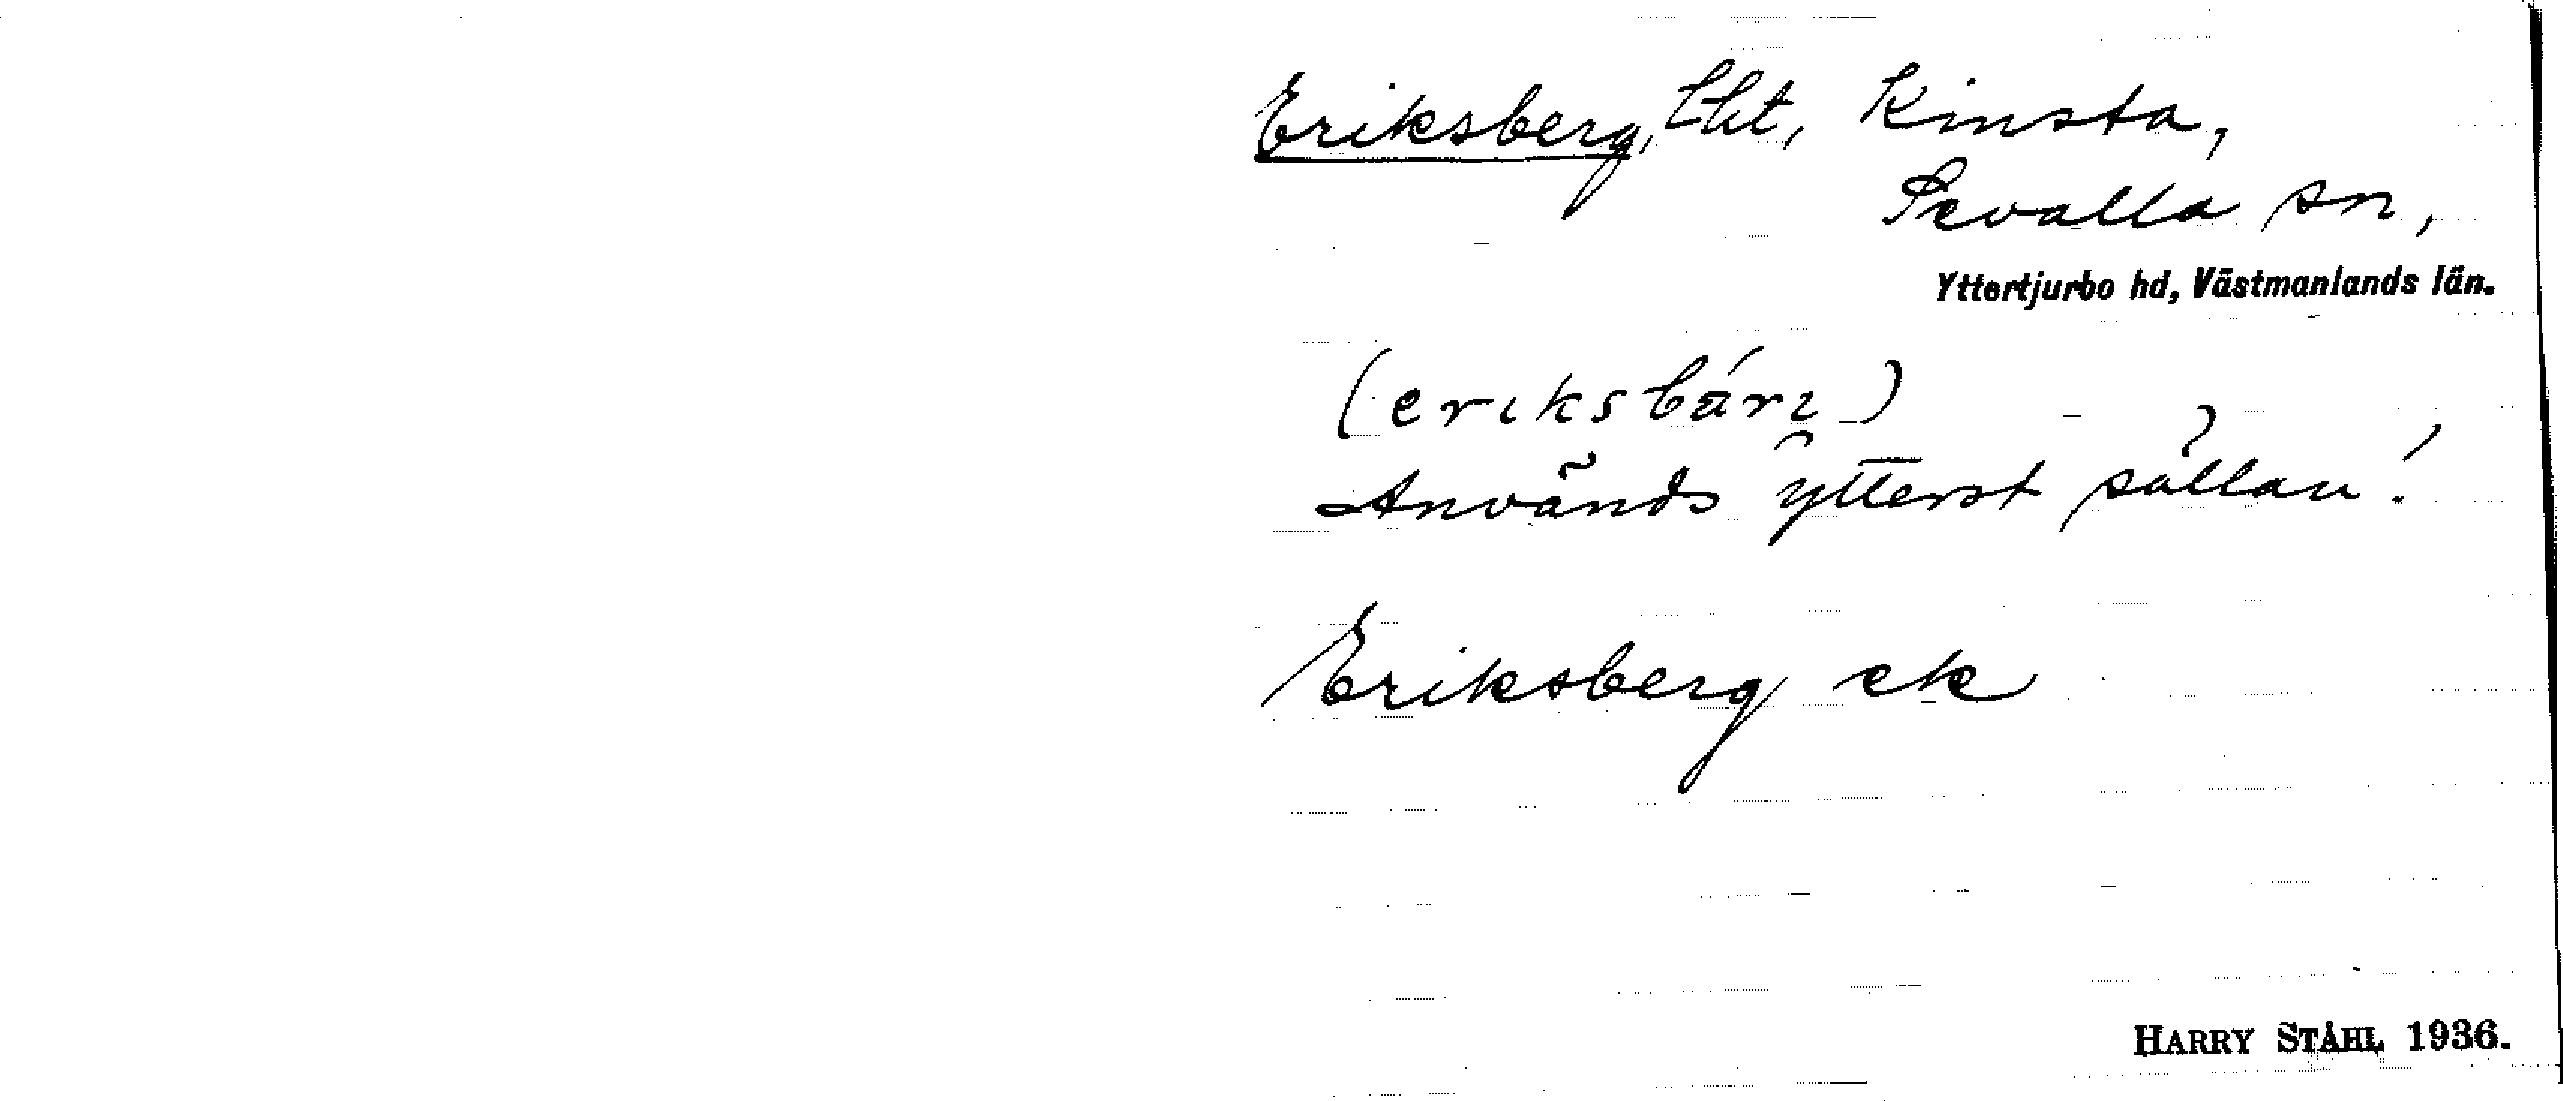 Eriksberg, lht, Kinsta,
Sevalla sn,
Yttertjurbo hd, Västmanlands län.
(eriksbárı)
Används ytterst sällan!
Eriksberg ek
HARRY STÅHL 1936.